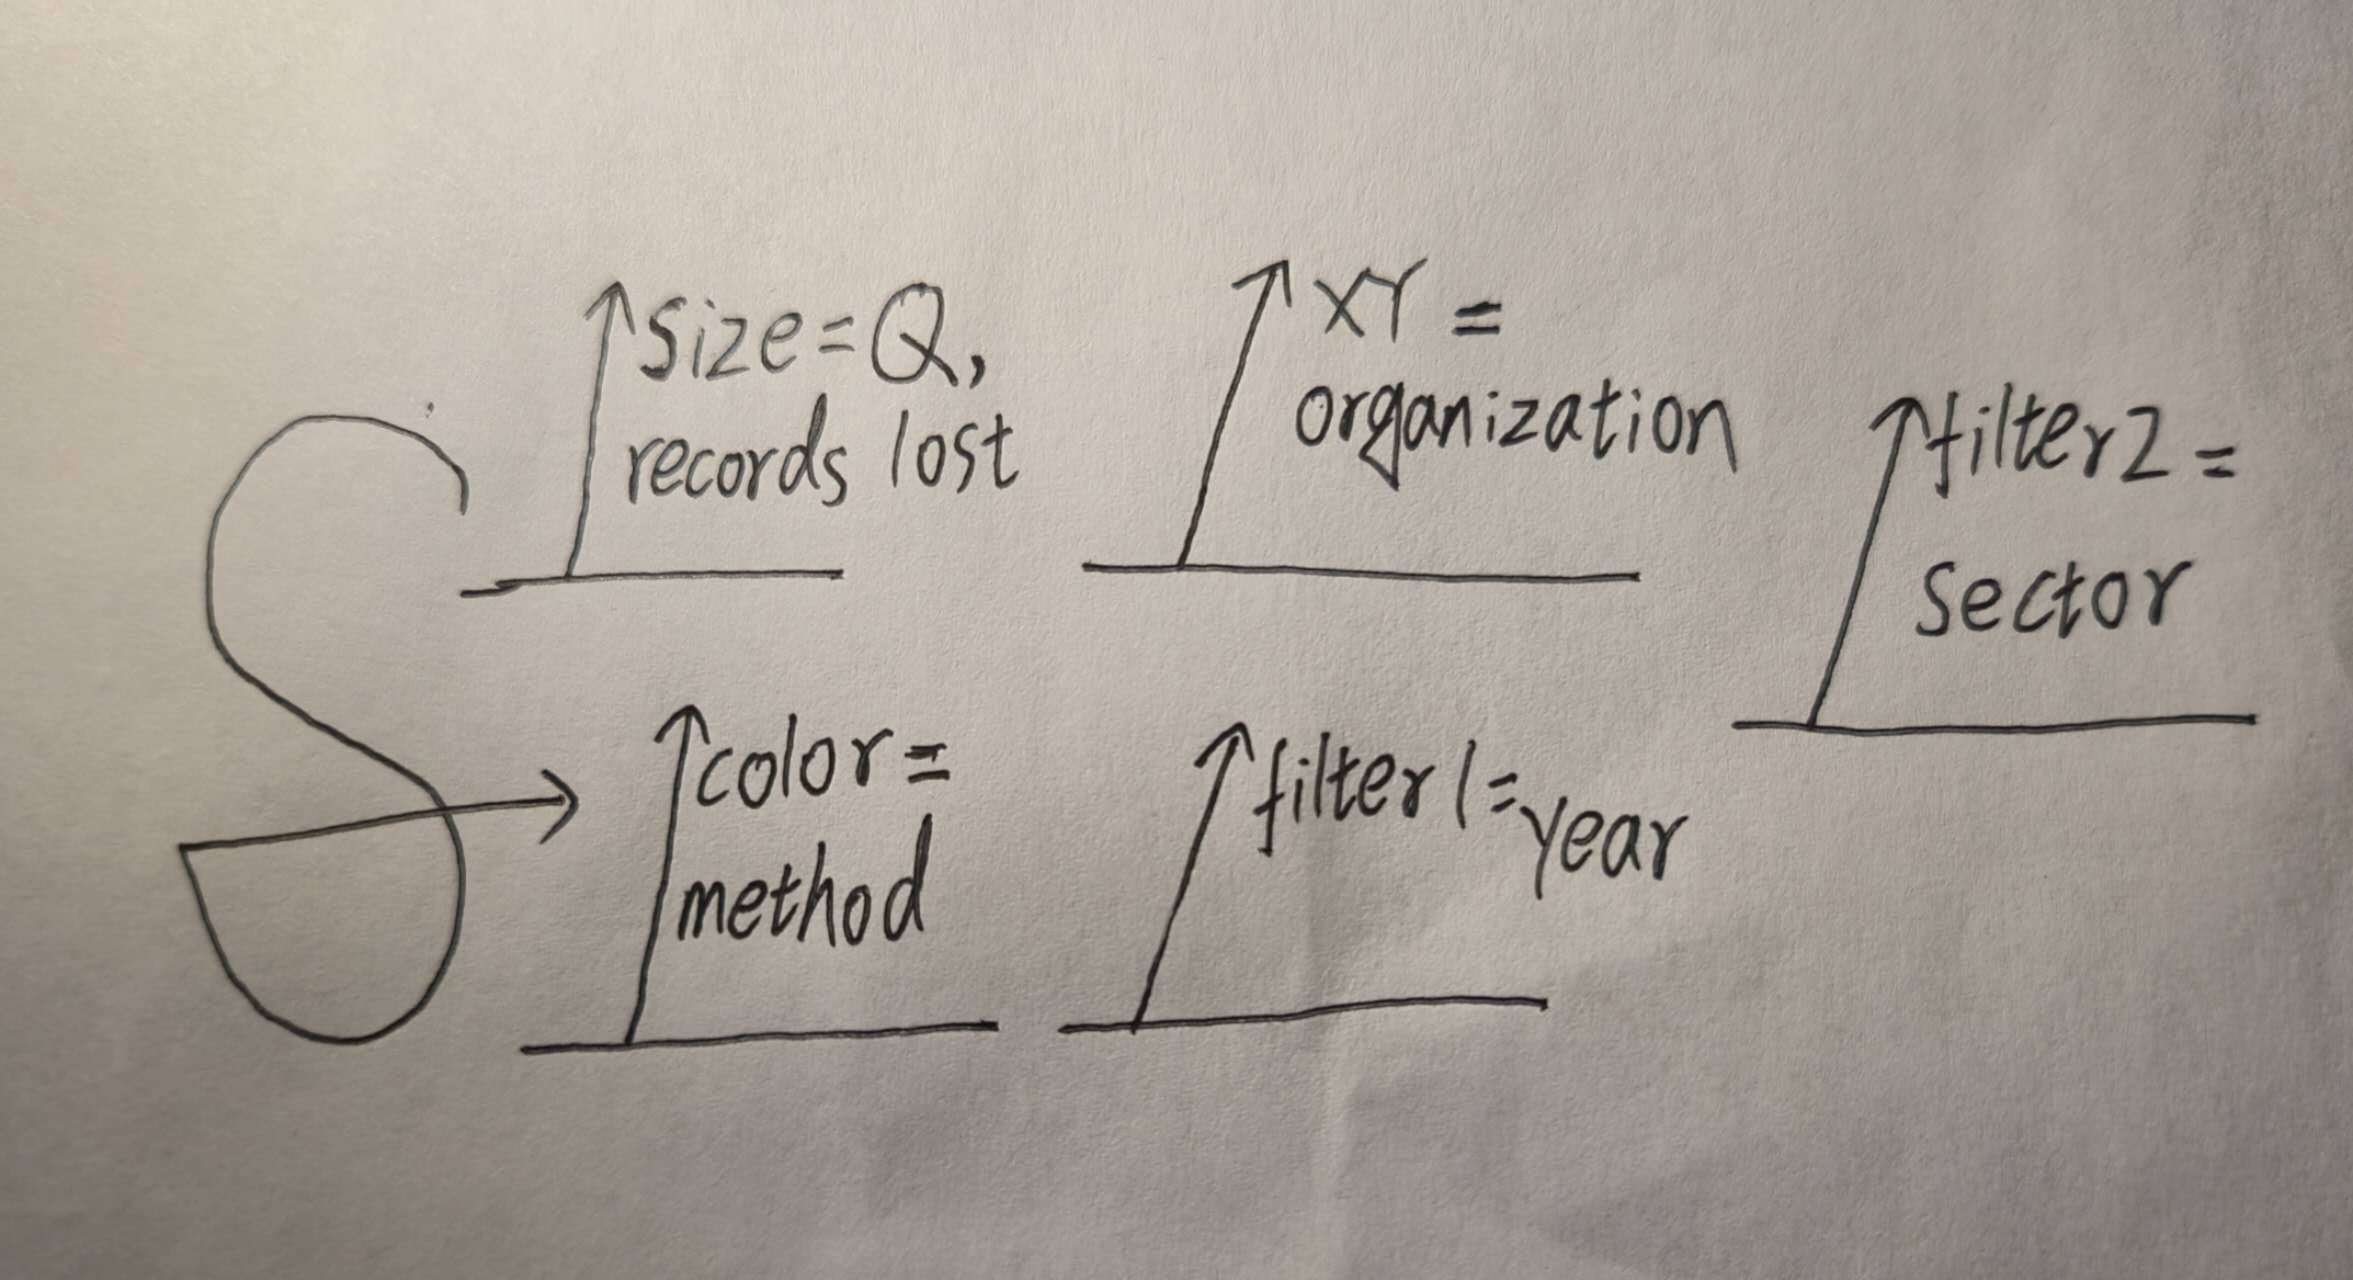 S
size=Q,
records lost
XY =
organization
filter2 =
sector
color=
method
filter1=year